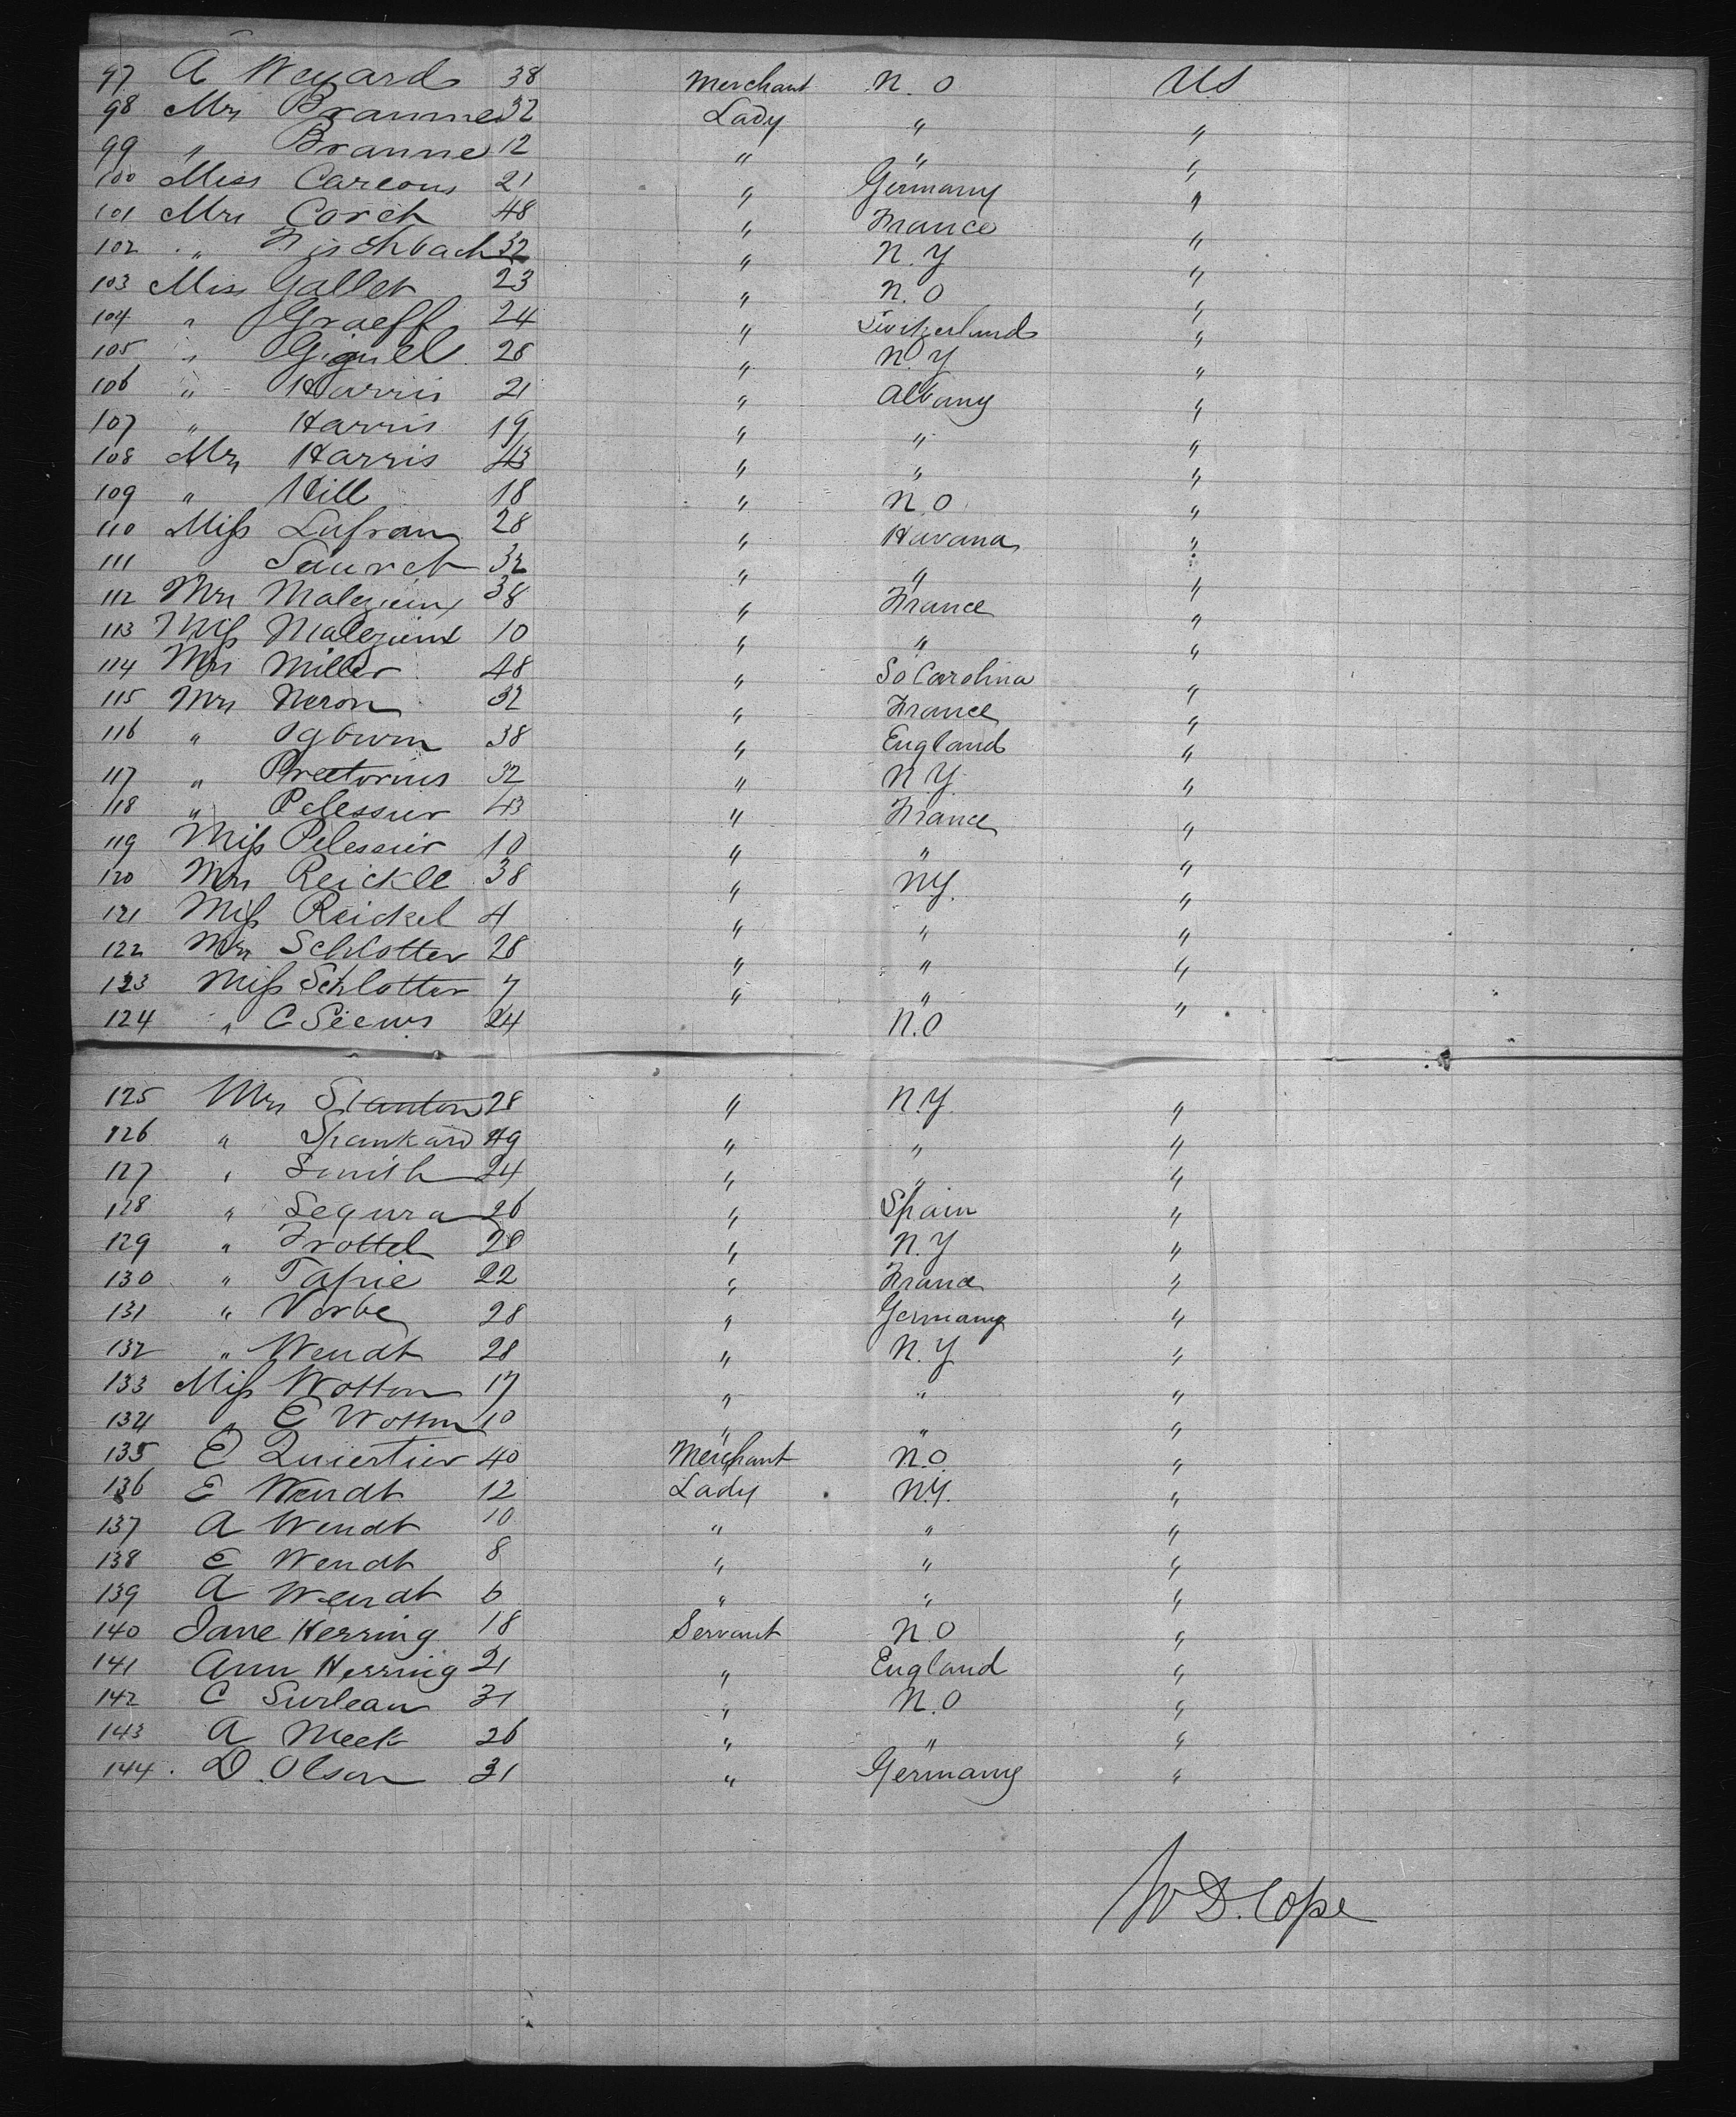 97 A Weyard 38 Merchant N.O US
98 Mrs Braunne 32 Lady " "
99 " Braune 12 " " "
100 Miss Careous 21 " Germany "
101 Mrs Corch 48 " France "
102 " Fischbach 32 " N.Y "
103 Miss Gallet 23 " N.O "
104 " Graeff 24 " Switzerland "
105 " Giguel 28 " N.Y "
106 " Harris 21 " Albany "
107 " Harris 19 " " "
108 Mrs Harris 43 " " "
109 " Hill 18 " N.O "
110 Miss Lafran 28 " Havana "
111 32 " " "
112 Mrs Malezieux 38 " France "
113 Miss Malezieux 10 " " "
114 Mrs Miller 48 " So Carolina "
115 Mrs Neron 32 " France "
116 " Ogburn 38 " England "
117 " Preetorius 32 " N.Y. "
118 " Pelessier 43 " France "
119 Miss Pelessier 10 " " "
120 Mrs Reickle 38 " NY. "
121 Miss Reickel 4 " " "
122 Mrs Schlotter 28 " " "
123 Miss Schlotter 7 " " "
124 " C Seews 24 N.O
125 Mrs Stanton 28 " N.Y. "
126 " Shankard 49 " " "
127 " Smith 24 " " "
128 " Segura 26 " Spain "
129 " Trottel 28 " N.Y "
130 " Tapie 22 " France "
131 " Vorbe 28 " Germany "
132 " Wendt 28 " N.Y "
133 Miss Wotton 17 " " "
134 " E Wotton 10 " " "
135 E Quiertier 40 Merchant N.O. "
136 E Wendt 12 Lady N.Y. "
137 A Wendt 10 " " "
138 E Wendt 8 " " "
139 A Wendt 6 " " "
140 Jane Herring 18 Servant N.O "
141 Ann Herring 21 " England "
142 C Surleau 31 " N.O "
143 A Meek 26 " " "
144. D. Olson 31 " Germany "
W D. Cope